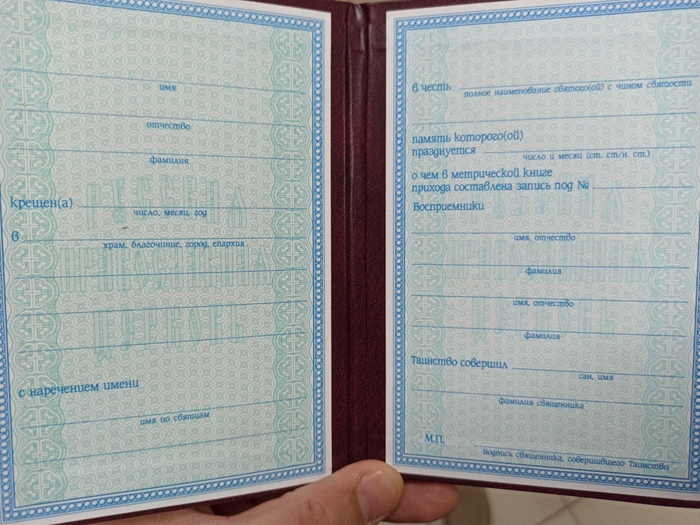 имя
отчество
фамилия
крещен(а)
число, месяц, год
в
храм, благочиние, город, епархия
с наречением имени
имя по святцам
в честь
полное наименование святого(ой) с чином святости
память которого(ой)
празднуется
число и месяц (ст. ст/н. ст.)
о чем в метрической книге
прихода составлена запись под №
Восприемники
имя, отчество
фамилия
имя, отчество
фамилия
Таинство совершил
сан, имя
фамилия священника
М.П.
подпись священника, совершившего Таинство